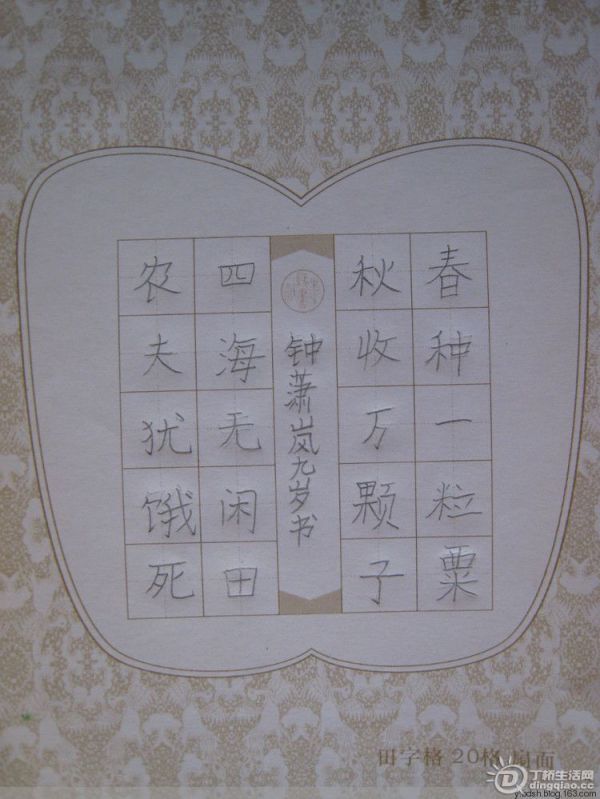 春种一粒粟
秋收万颗子
钟萧岚九岁书
四海无闲田
农夫犹饿死
田字格 20格 扇面
丁桥生活网
dingqiao.cc
yhxdsh.blog.163.com